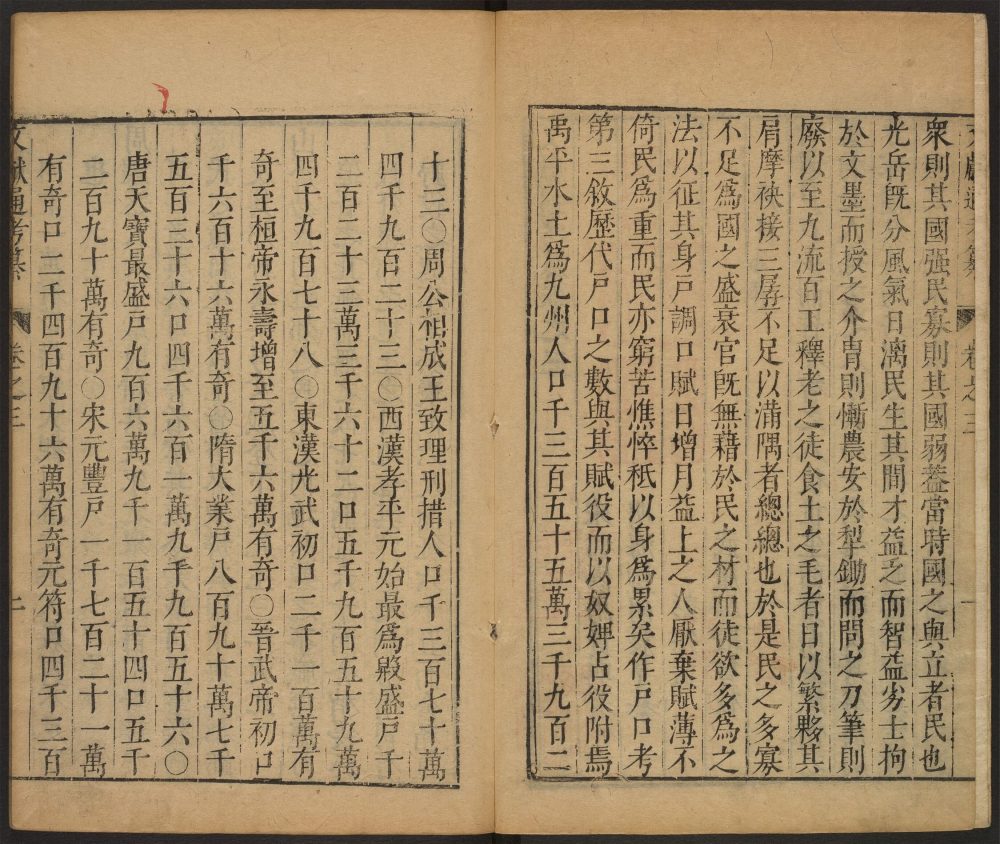 衆則其國强民寡則其國弱葢當時國之與立者民也
光岳旣分風氣日漓民生其間才益之而智益劣士拘
於文墨而授之介冑則慚農安於犁鋤而問之刀筆則
廢以至九流百工釋老之徒食土之毛者日以繁夥其
肩摩袂接三孱不足以滿隅者總總也於是民之多寡
不足爲國之盛衰官旣無藉於民之材而徒欲多爲之
法以征其身戶調口賦日增月益上之人厭棄賦薄不
倚民爲重而民亦窮苦憔悴秪以身爲累矣作戶口考
第三敘歷代戶口之數與其賦役而以奴婢占役附焉
禹平水土爲九州人口千三百五十五萬三千九百二
卷之三
一
十三〇周公相成王致理刑措人口千三百七十萬
四千九百二十三〇西漢孝平元始最爲殷盛戶千
二百二十三萬三千六十二口五千九百五十九萬
四千九百七十八〇東漢光武初口二千一百萬有
奇至桓帝永壽增至五千六萬有奇〇晉武帝初口
千六百十六萬有奇〇隋大業戶八百九十萬七千
五百三十六口四千六百一萬九千九百五十六〇
唐天寶最盛戶九百六萬九千一百五十四口五千
二百九十萬有奇〇宋元豐戶一千七百二十一萬
有奇口二千四百九十六萬有奇元符口四千三百
文獻通考纂 卷之三 二